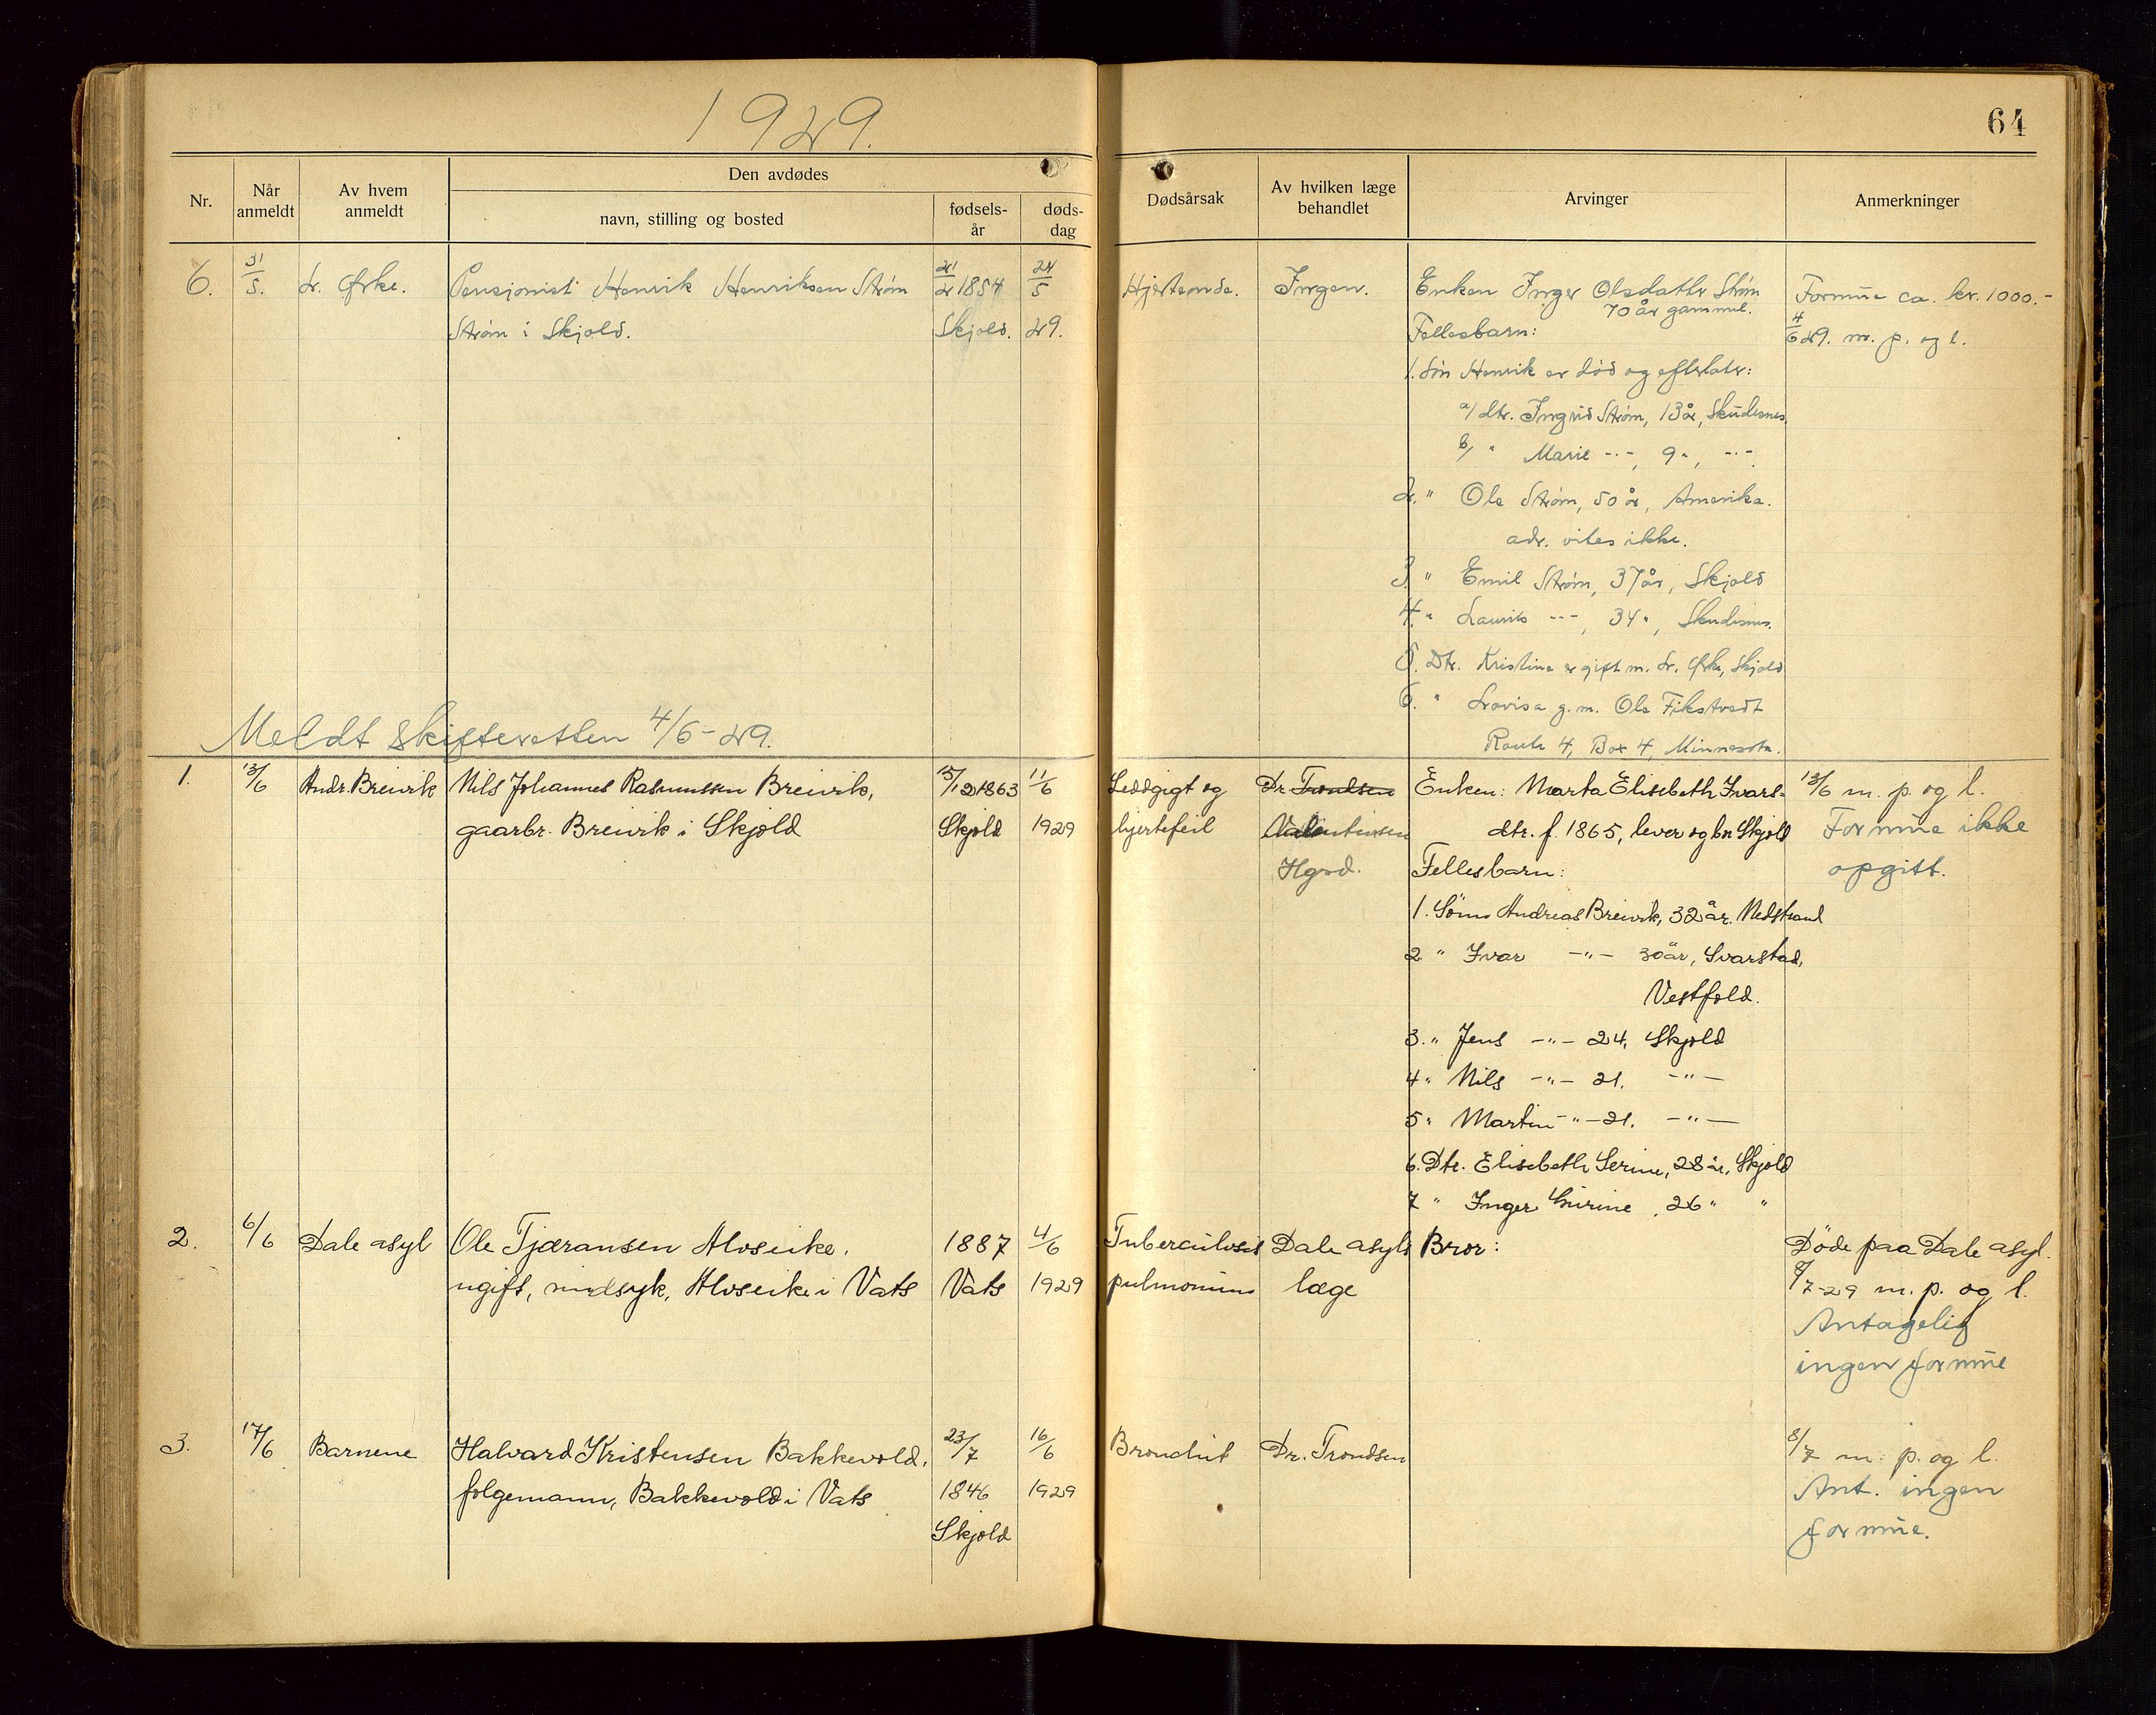 1929.
64
Nr.
Når anmeldt
Av hvem anmeldt
Den avdødes
navn, stilling og bosted
fødsels-år
døds-dag
Dødsårsak
Av hvilken læge behandlet
Arvinger
Anmerkninger
6. 31/5. L. Ørke. Pensjonist Henrik Henriksen Strøm 21/2 1854 24/5 Hjerteonde. Ingen. Enken Inger Olsdatter Strøm Formue ca. kr. 1000.-
70 år gammel.
Strøm i Skjold. Skjold. 29. Fellesbarn: 4/6 29. m. p. og l.
1. Søn Henrik er død og efterlater:
a/ dtr. Ingrid Strøm, 13 år, Skudesnes.
b/ " Marie -"-, 9 ", -"-.
2. " Ole Strøm, 50 år, Amerika.
adr. vites ikke.
3. " Emil Strøm, 37 år, Skjold
4. " Laurits -"-, 34 ", Skudesnes.
5. Dtr. Kristine er gift m. L. Ørke, Skjold
6. " Lovisa g. m. Ole Fikstvedt
Route 4, Box 4, Minnesota.
Meldt skifteretten 4/6 - 29.
1. 13/6 Andr. Breivik Nils Johannes Rasmussen Breivik, 15/12 1863 11/6 Leddgigt og Dr. Trondsen Enken: Marta Elisebeth Ivars- 13/6 m. p. og l.
gaarbr. Breivik i Skjold Skjold 1929 hjertefeil Valentinsen dtr. f. 1865, lever og bor Skjold Formue ikke
Hgsd. Fellesbarn: opgitt.
1. Sønn Andreas Breivik, 32 år. Nedstrand
2 " Ivar -"- 30 år, Svarstad,
Vestfold.
3. " Jens -"- 24, Skjold
4 " Nils -"- 21. -"-
5 " Martin -"- 21. -"-
6. Dtr. Elisebeth Serine, 28 år, Skjold
7 " Inger , 26 " "
2. 6/6 Dale asyl Ole Tjæransen Alvseike. 1887 4/6 Tuberculosis Dale asyls Bror: Døde paa Dale asyl.
ugift, sindsyk, Alvseike i Vats Vats 1929 pulmonum læge 8/7-29 m. p. og l.
Antagelig
ingen formue
3. 17/6 Barnene Halvard Kristensen Bakkevold, 23/7 16/6 Bronchit Dr. Trondsen 8/7 m. p. og l.
folgemann, Bakkevold i Vats 1846 1929 Ant. ingen
Skjold formue.